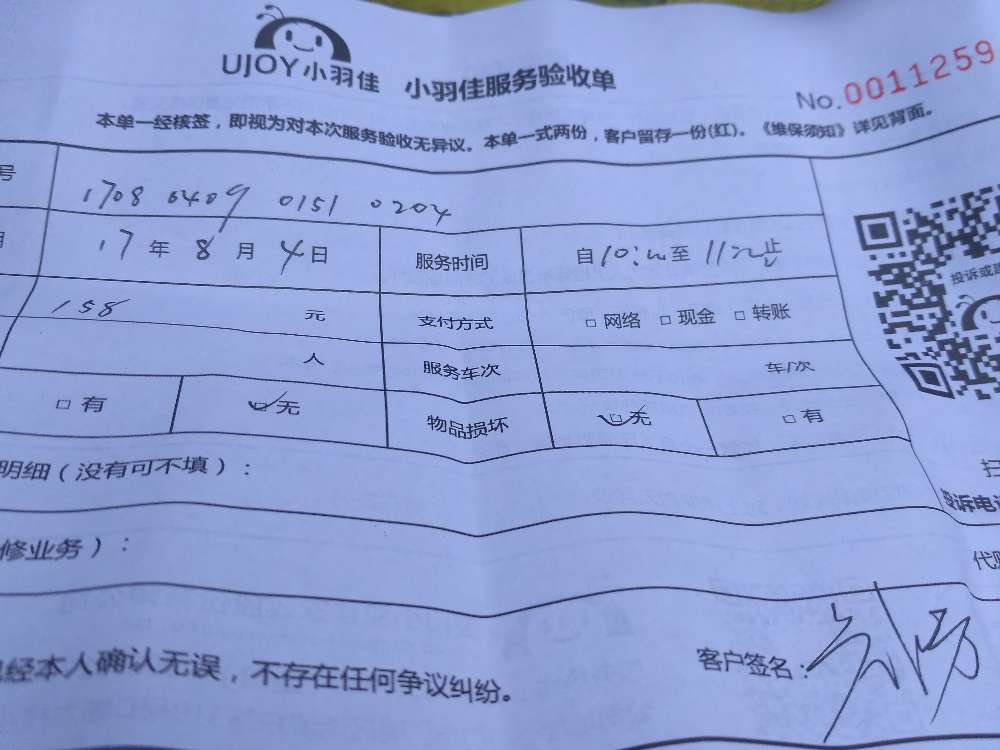 UJOY小羽佳 小羽佳服务验收单
No.0011259
本单一经核签，即视为对本次服务验收无异议。本单一式两份，客户留存一份(红)。《维保须知》详见背面。
号 1708 0409 0151 0204
17年8月4日 服务时间 自10: 至11 止
投诉或
158 元 支付方式 □网络 □现金 □转账
人 服务车次 车/次
□有 □无 物品损坏 □无 □有
明细（没有可不填）：
投诉电
修业务）：
经本人确认无误，不存在任何争议纠纷。
客户签名：